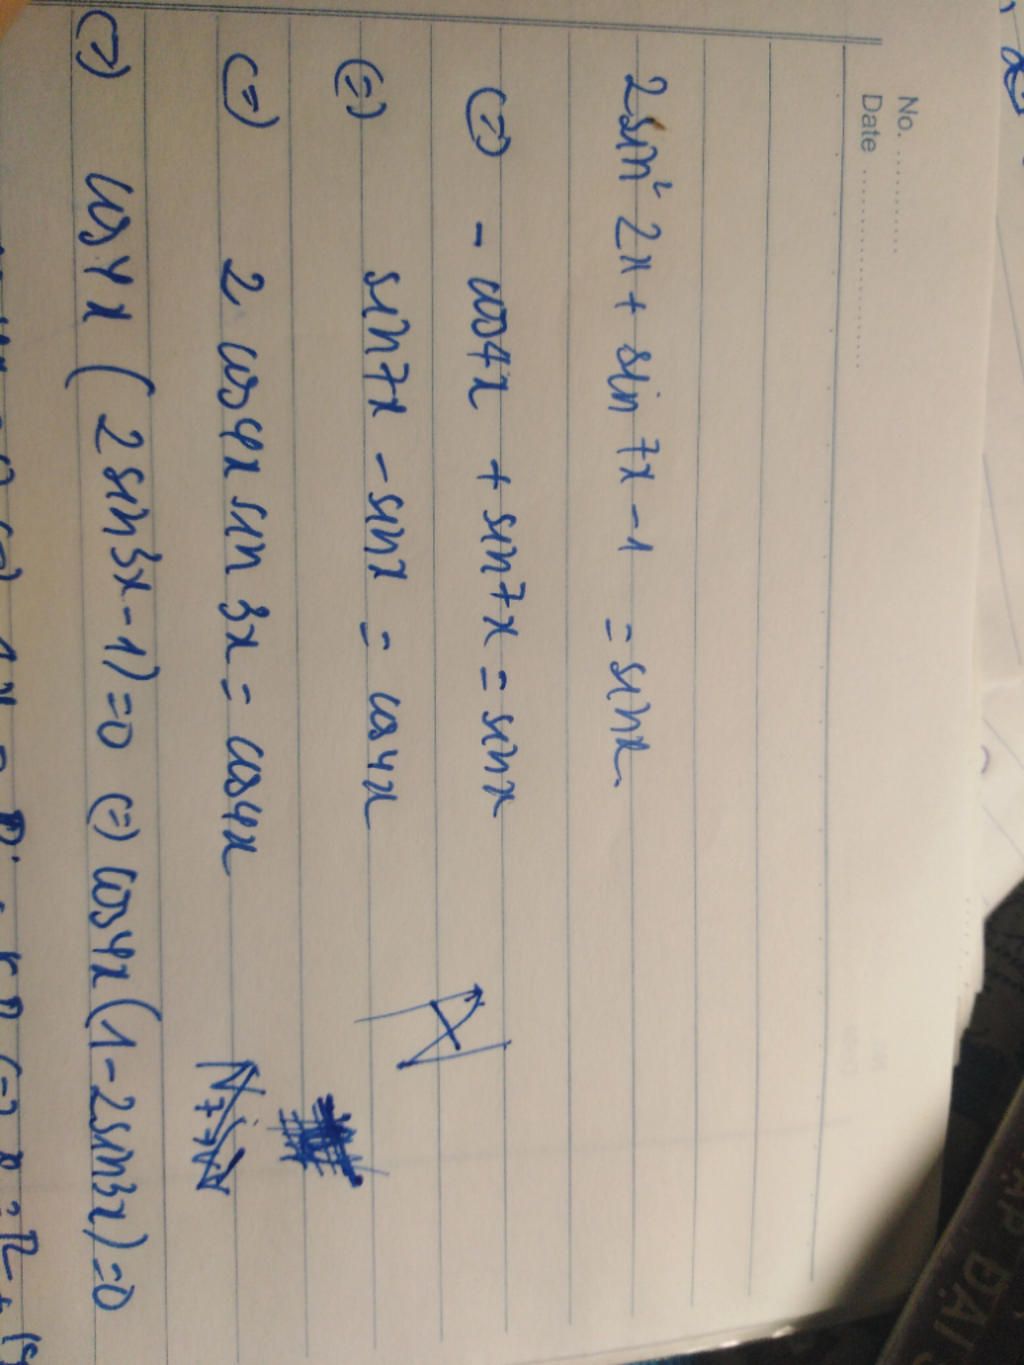 No. ..................
Date ..............................
2sin² 2x + sin 7x - 1 = sinx.
(=) - cos4x + sin7x = sinx
(=) sin7x - sinx = cos4x
(=) 2 cos4x sin 3x = cos4x
(=) cos4x ( 2 sin3x - 1) = 0 (=) cos4x (1 - 2sin3x) = 0